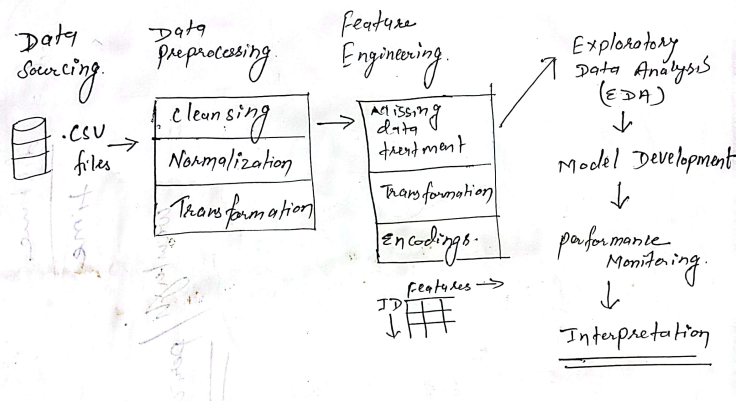 Data
Sourcing.
.CSV
files
Data
Preprocessing.
Cleansing
Normalization
Transformation
Feature
Engineering.
Missing
data
treatment
Transformation
Encodings.
Features
ID
Exploratory
Data Analysis
(EDA)
Model Development
Performance
Monitoring.
Interpretation